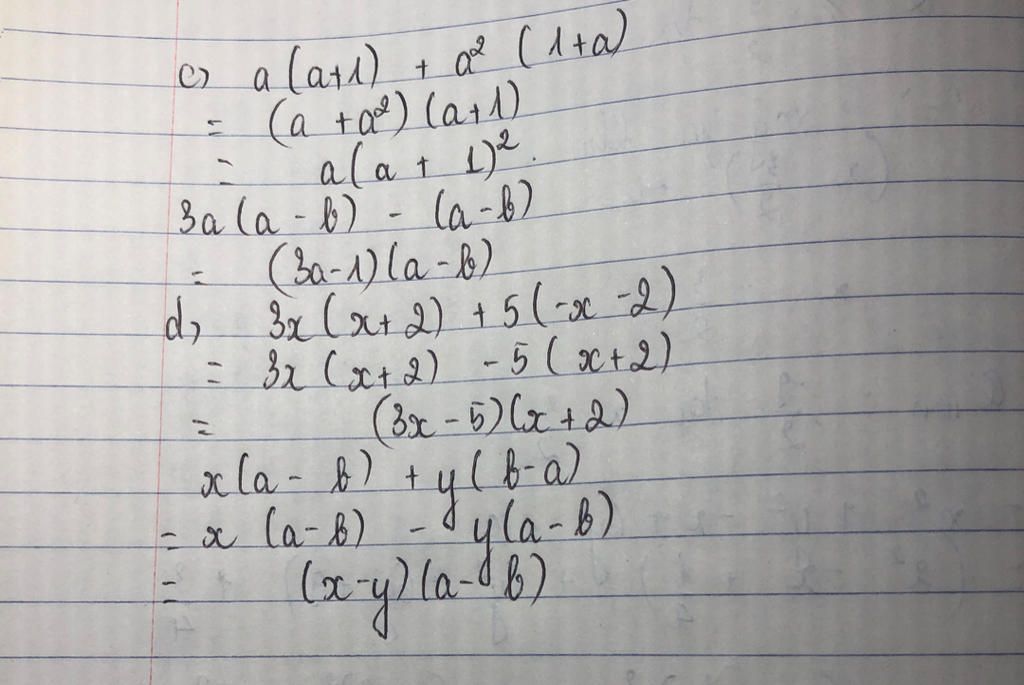 c) a(a+1) + a² (1+a)
= (a +a²)(a+1)
= a(a + 1)².
3a(a - b) - (a-b)
= (3a-1)(a-b)
d, 3x(x+2) +5(-x -2)
= 3x(x+2) -5(x+2)
= (3x-5)(x+2)
x(a - b) + y(b-a)
= x (a-b) - y(a-b)
= (x-y)(a-b)